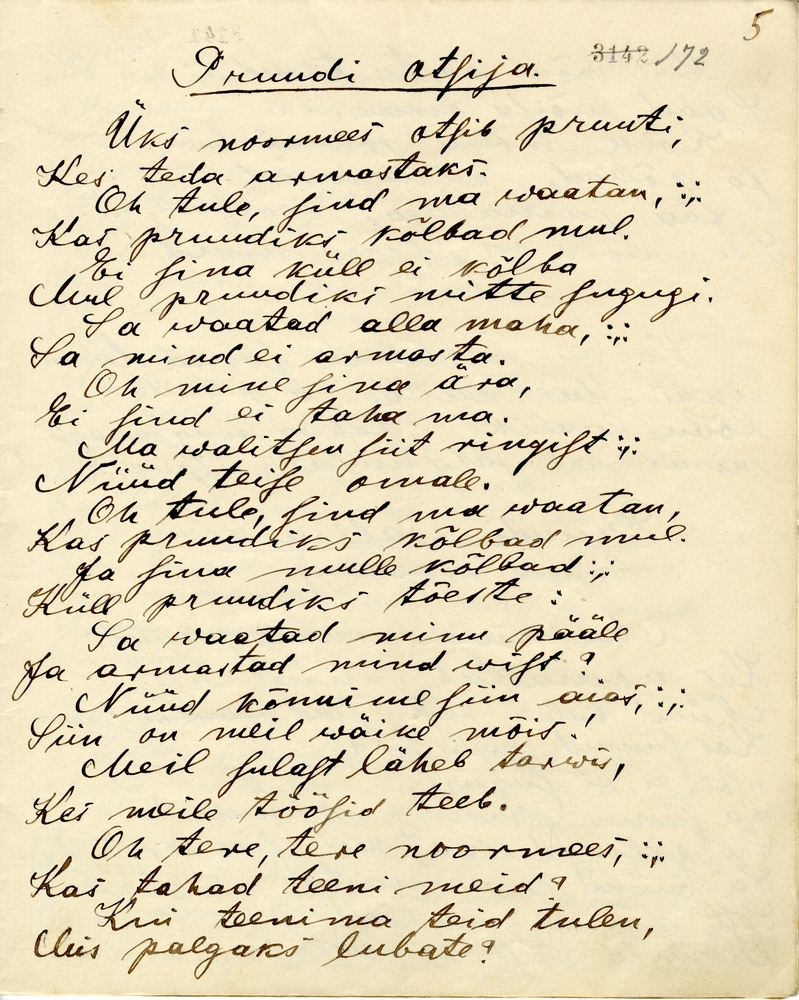 5
3142 /72
Pruudi otsija.
Üks noormees otsib pruuti,
Kes teda armastaks.
Oh tule, sind ma waatan, :,:
Kas pruudiks kõlbad mul.
Ei sina küll ei kõlba
Mul pruudiks mitte sugugi.
Sa waatad alla maha, :,:
Sa mind ei armasta.
Oh mine sina ära,
Ei sind ei taha ma.
Ma walitsen siit ringist :,:
Nüüd teise omale.
Oh tule, sind ma waatan,
Kas pruudiks kõlbad mul.
Ja sina mulle kõlbad :,:
Küll pruudiks tõeste :
Sa waatad minu pääle
Ja armastad mind wist?
Nüüd kõnnime siin aias, :,:
Siin on meil wäike mõis!
Meil sulast läheb tarwis,
Kes meile töösid teeb.
Oh tere, tere noormees, :,:
Kas tahad teeni meid?
Kui teenima teid tulen,
Mis palgaks lubate?